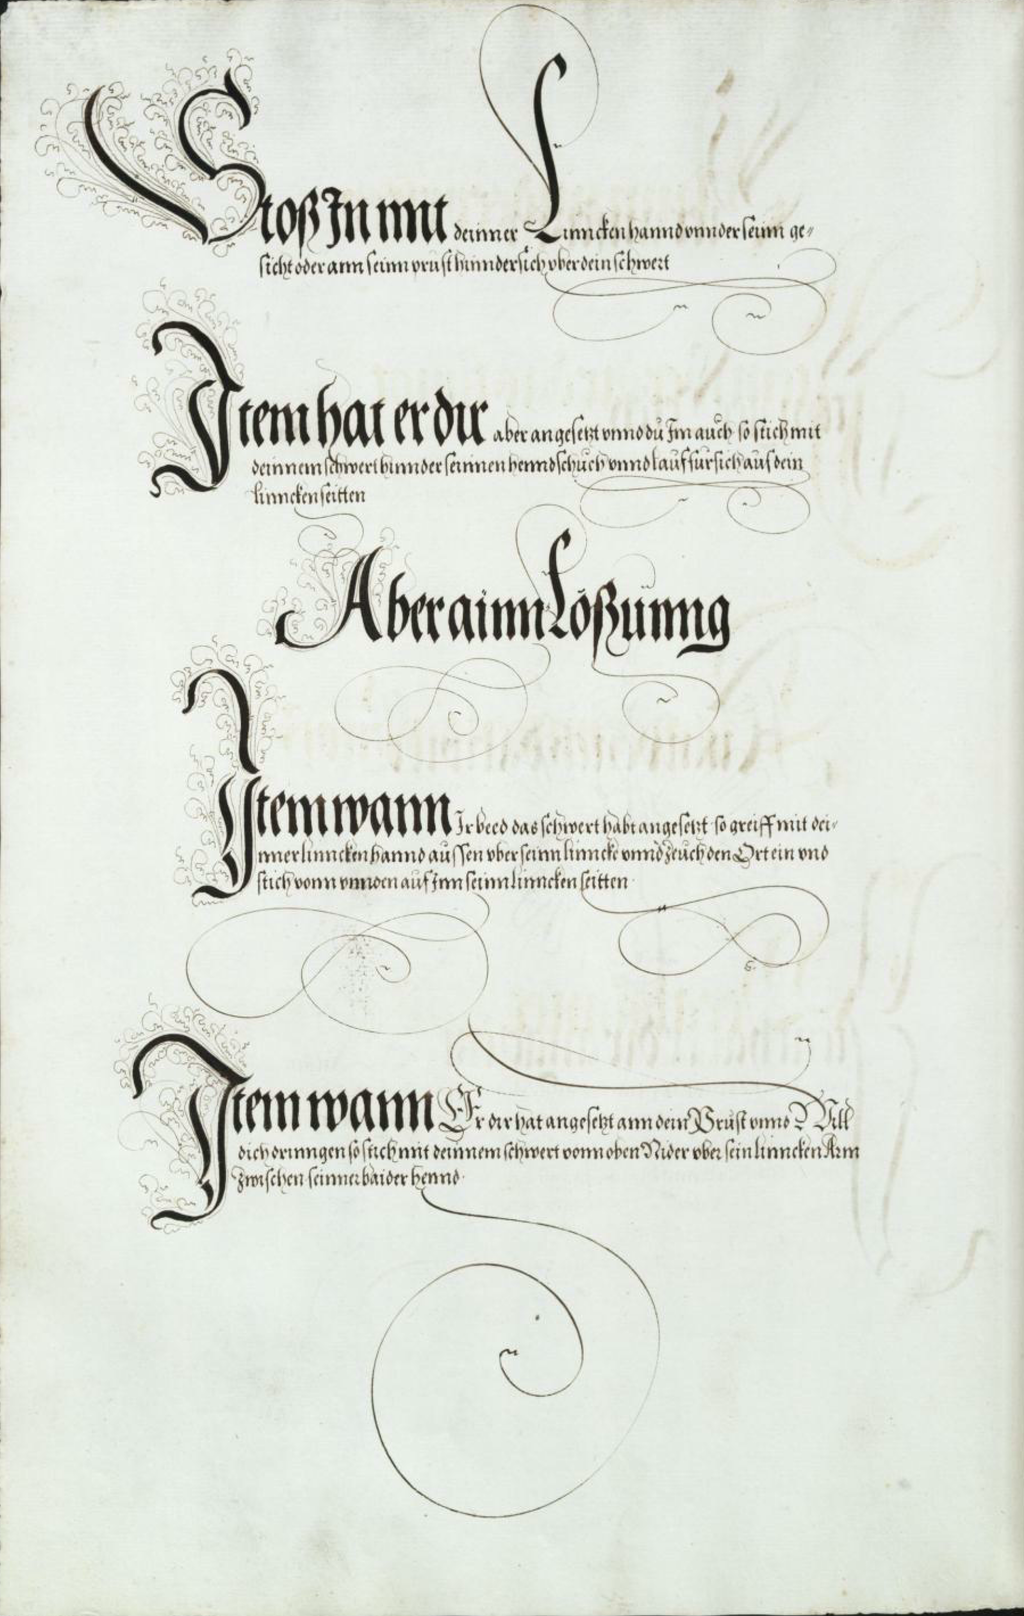 Stoß In mit deinner Linncken hannd vnnder seinn ge-
sicht oder ann seinn prust hinndersich vber dein schwert
Item hat er dir aber angesetzt vnnd dů Im aůch so stich mit
deinnem schwert hinnder seinnen henndschůch vnnd laůf fursich aůs dein
linncken seitten
Aber ainn Lößůnng
Item wann Ir beed das schwert habt angesetzt so greiff mit dei-
nner linncken hannd aussen vber seinn linncke vnnd zeuch den Ort ein vnd
stich vonn vnnden auf Inn seinn linncken seitten
Item wann Er dir hat angesetzt ann dein Prust vnnd Will
dich dringen so stich mit deinnem schwert vonn oben Nider vber sein linncken Arm
zwischen seinner baider hennd